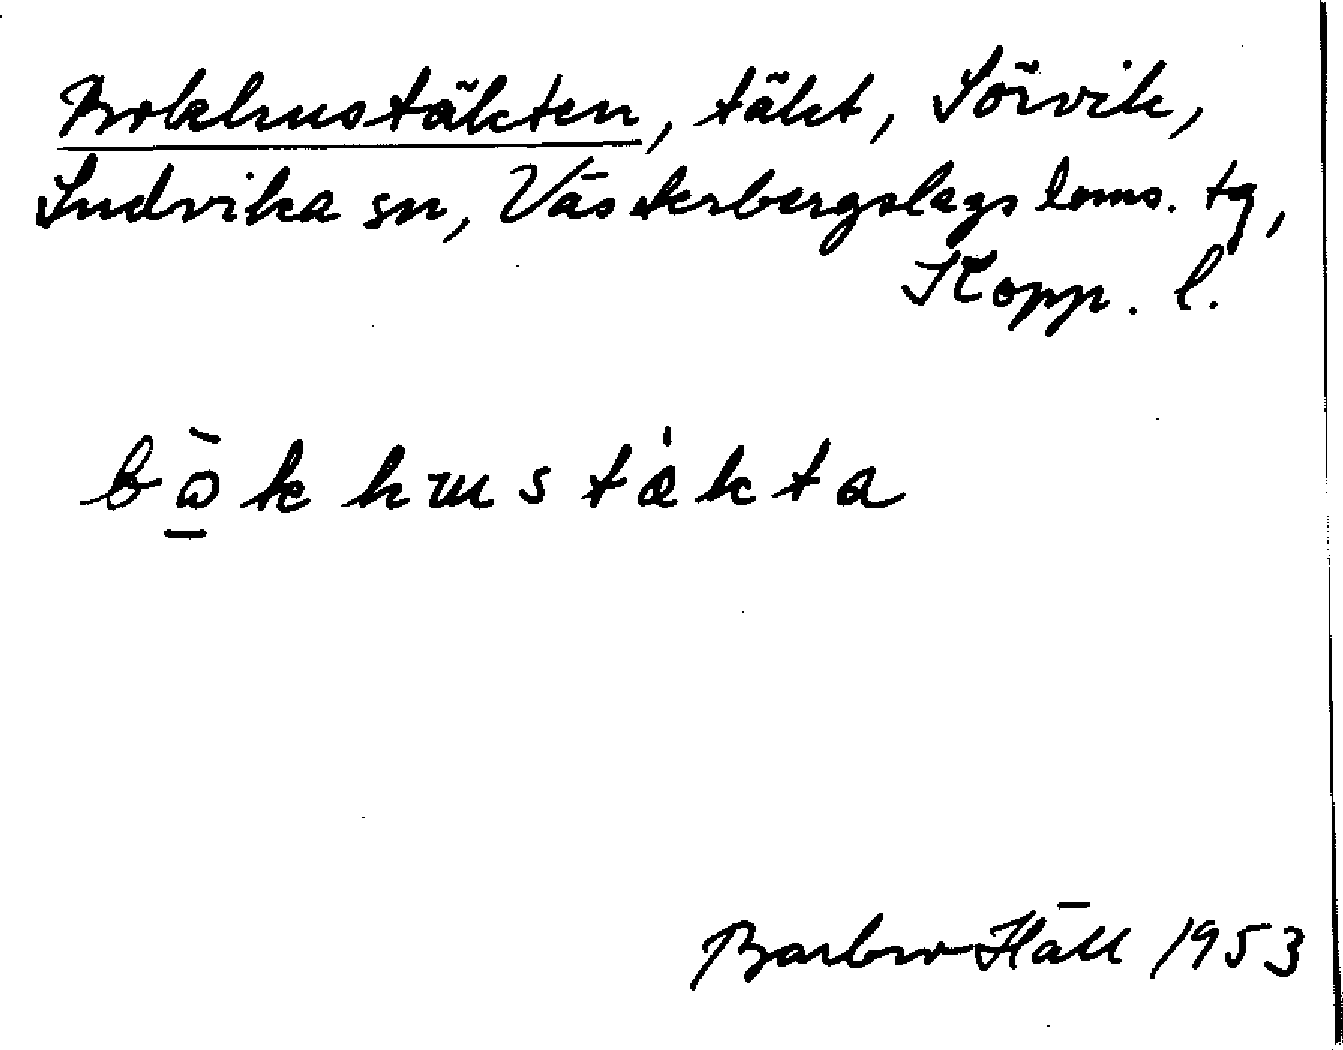 Bokhustäkten, täkt, Sörvik,
Ludvika sn, Västerbergslags doms. tg,
Kopp. l.
bå̀k husta̍kta
Barbro Häll 1953